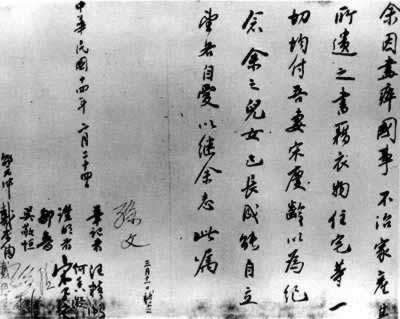 余因盡瘁國事不治家產其
所遺之書籍衣物住宅等一
切均付吾妻宋慶齡以為紀
念余之兒女已長成能自立
望各自愛以繼余志此囑
孫文
三月十一日補簽
中華民國十四年二月二十四
筆記者 汪精衛
何香凝
證明者 宋子文
鄒魯
吳敬恒
戴恩賽
邵元沖